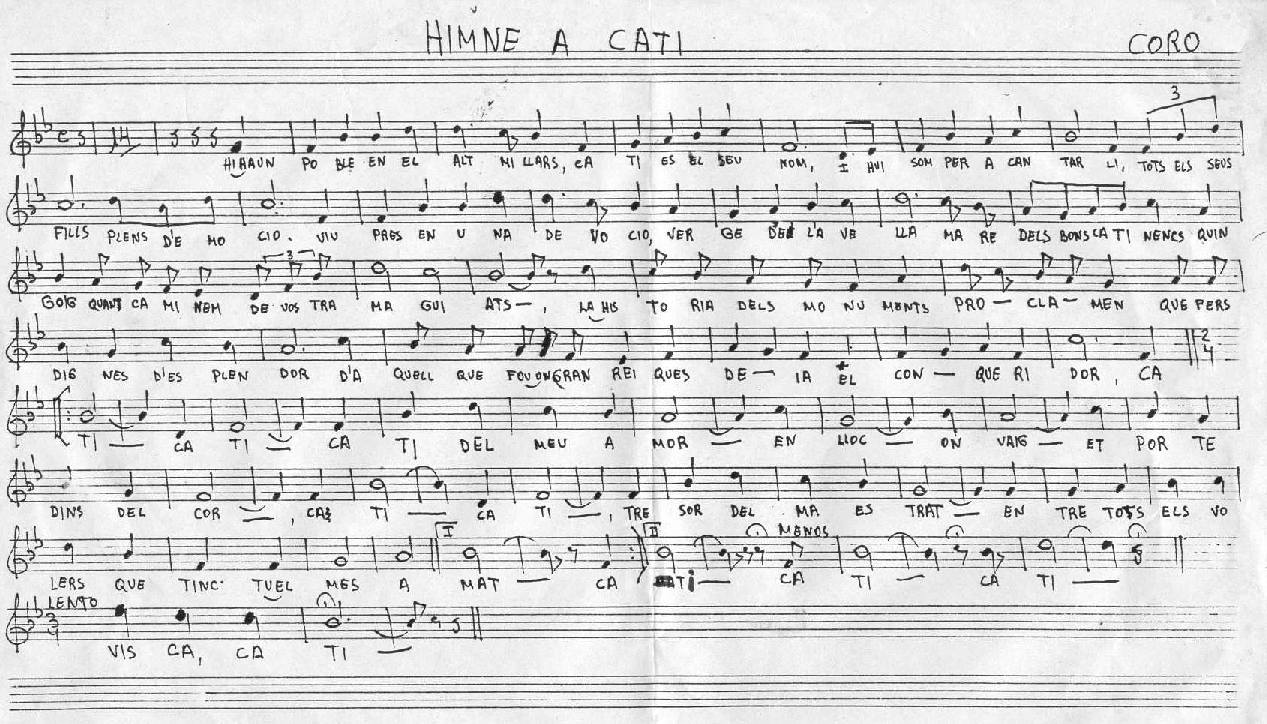 HIMNE A CATI
CORO
3
C 14
HI HAUN PO BLE EN EL ALT MI LLARS, CA TI ES EL SEU NOM, I HUI SOM PER A CAN TAR LI, TOTS ELS SEUS
FILLS PLENS D'E MO CIO. VIU PRES EN U NA DE VO CIO, VER GE DE L'A VE LLA MA RE DELS BONS CA TI NENCS QUIN
3
GOIG QUANT CA MI NEM DE VOS TRA MA GUI ATS—, LA HIS TO RIA DELS MO NU MENTS PRO — CLA — MEN QUE PERS
2
4
DIG NES D'ES PLEN DOR D'A QUELL QUE FOU ON GRAN REI QUES DE — IA EL CON — QUE RI DOR, CA
TI — CA TI — CA TI DEL MEU A MOR — EN LLOC — ON VAIG — ET POR TE
DINS DEL COR —, CAS TI — CA TI —, TRE SOR DEL MA ES TRAT — EN TRE TOTS ELS VO
I II MENOS
LERS QUE TINC TUEL MES A MAT — CA TI — CA TI — CA TI —
LENTO
3
4
VIS CA, CA TI —